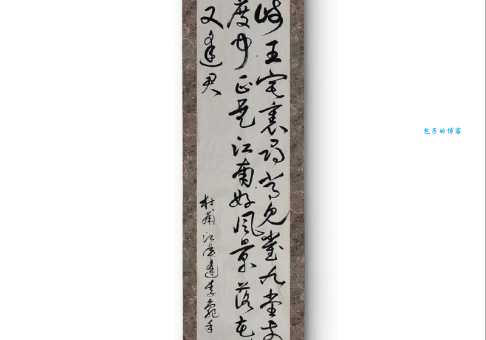 岐王宅裏尋常見崔九堂前
度聞正是江南好風景落花
又逢君
杜甫江南逢李龜年
的博客